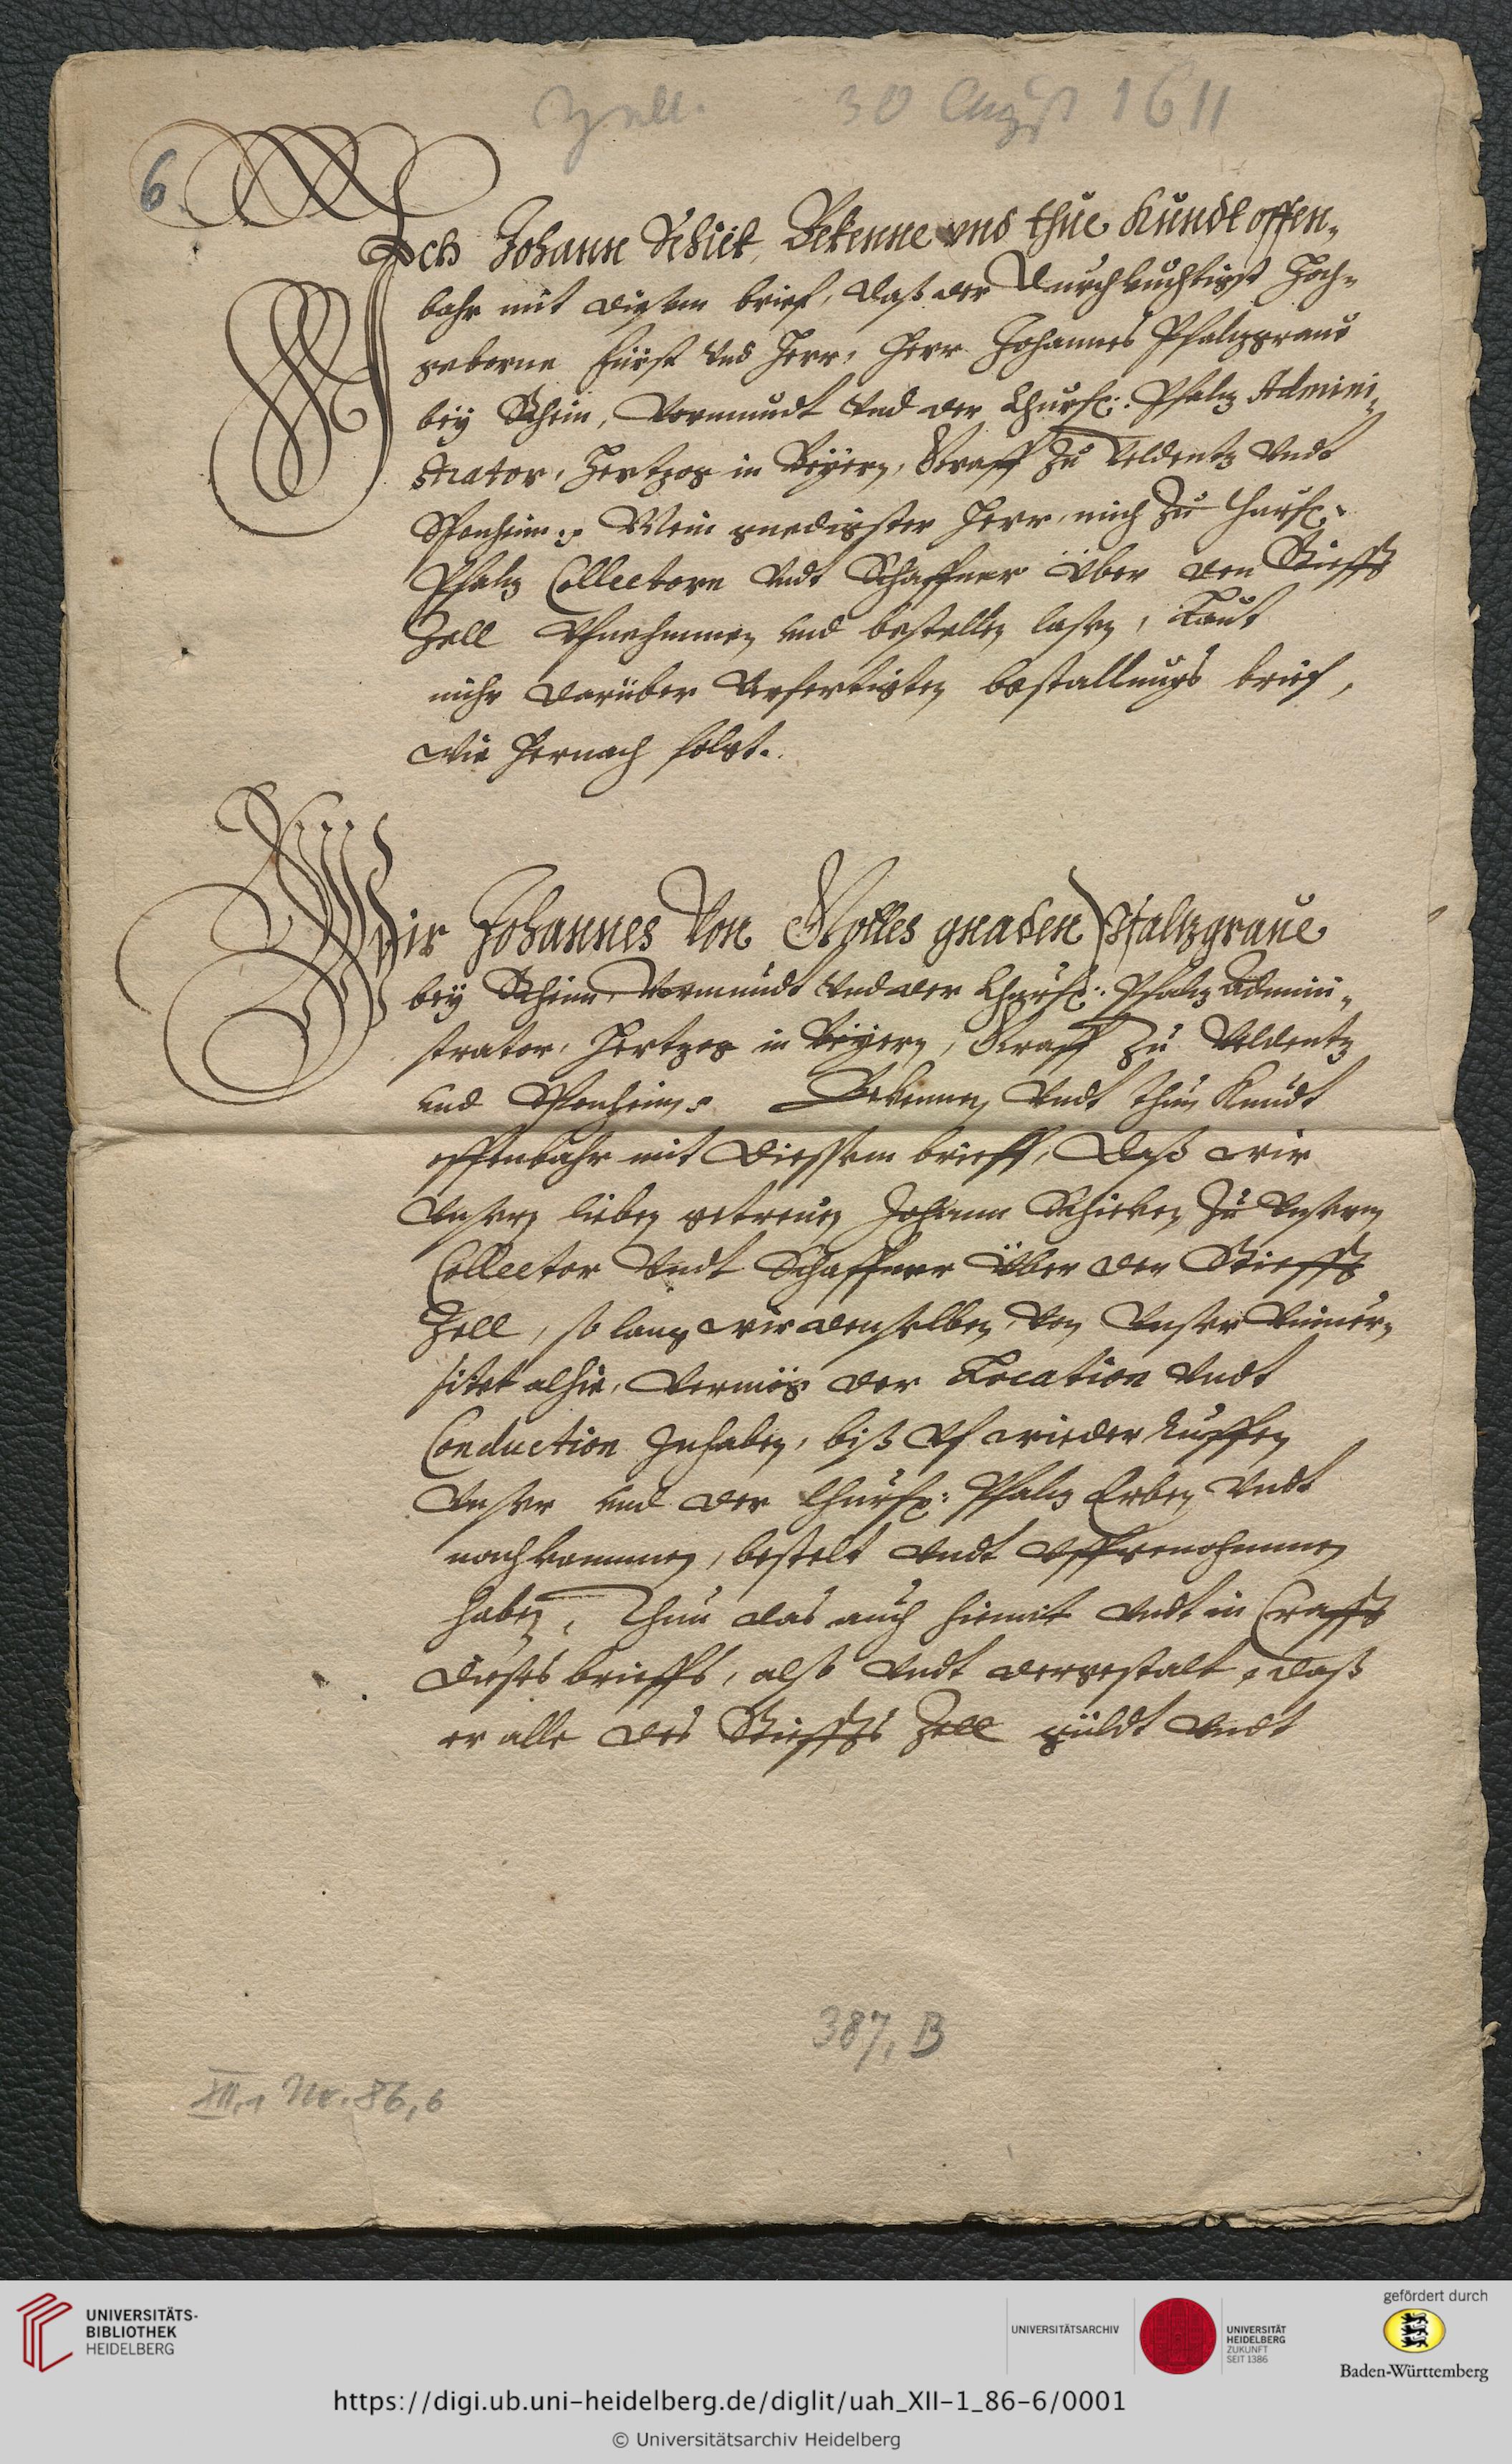 Zell. 30 Augst 1611
6
Ich Johann Schick, Bekenne vnd thue Kundt offen-
bahr mit diesem brief, daß der Durchleuchtigst Hoch-
geborne Fürst vnd Herr, Herr Johannes Pfaltzgraue
bey Rhein, Vormundt vnd der Churf: Pfaltz Admini-
strator, Hertzog in Beyern, Graff zu Veldentz vndt
Sponheim: Mein gnedigster Herr, mich zu Churf:
Pfaltz Collectorn vndt Schaffner über den Stiefft
Zell vfnehmmen vnd bestellen lassen, Laut
mihr darüber verfertigten bestallungs brief,
wie hernach folgt.
Wir Johannes Von Gottes gnaden Pfaltzgraue
bey Rhein, Vormundt vnd der Churf: Pfaltz Admini-
strator, Hertzog in Beyern, Graff zu Veldentz
vnd Sponheim. Bekennen vndt thun Kundt
offenbahr mit diessem brieff, daß wir
vnsern lieben getreuen Johann Schicken zu vnserm
Collector vndt Schaffner über den Stiefft
Zell, so lang wir denselben, von vnser Vniuer-
sitet alhie, vermög der Location vndt
Conduction Inhaben, biß vf wiederruffen
vnser vnd der Churf: Pfaltz Erben vndt
nachkommen, bestelt vndt vffgenohmmen
haben, Thun das auch hiemit vndt in Crafft
dieses brieffs, also vndt dergestalt, daß
er alle des Stieffts Zell güldt vndt
387, B
XII,1 Nr. 86,6
UNIVERSITÄTS-
BIBLIOTHEK
HEIDELBERG
UNIVERSITÄTSARCHIV
UNIVERSITÄT
HEIDELBERG
ZUKUNFT
SEIT 1386
gefördert durch
Baden-Württemberg
https://digi.ub.uni-heidelberg.de/diglit/uah_XII-1_86-6/0001
© Universitätsarchiv Heidelberg